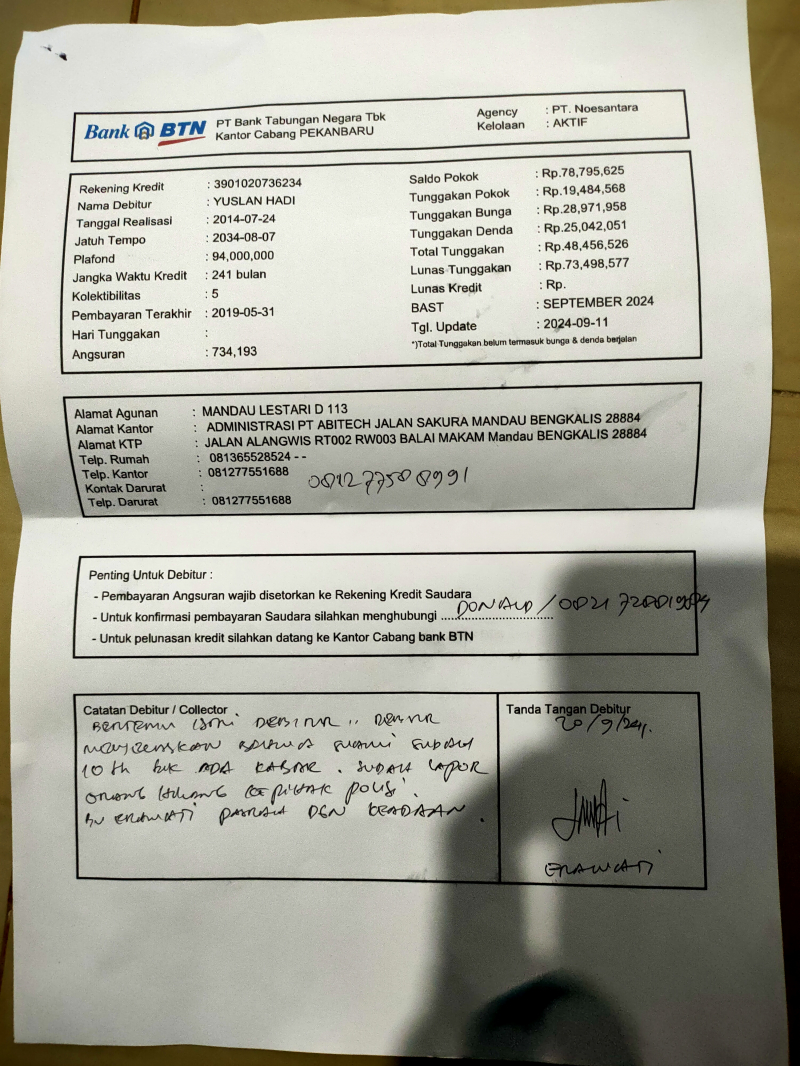 Bank BTN
PT Bank Tabungan Negara Tbk
Kantor Cabang PEKANBARU
Agency : PT. Noesantara
Kelolaan : AKTIF
Rekening Kredit : 3901020736234
Nama Debitur : YUSLAN HADI
Tanggal Realisasi : 2014-07-24
Jatuh Tempo : 2034-08-07
Plafond : 94,000,000
Jangka Waktu Kredit : 241 bulan
Kolektibilitas : 5
Pembayaran Terakhir : 2019-05-31
Hari Tunggakan :
Angsuran : 734,193
Saldo Pokok : Rp.78,795,625
Tunggakan Pokok : Rp.19,484,568
Tunggakan Bunga : Rp.28,971,958
Tunggakan Denda : Rp.25,042,051
Total Tunggakan : Rp.48,456,526
Lunas Tunggakan : Rp.73,498,577
Lunas Kredit : Rp.
BAST : SEPTEMBER 2024
Tgl. Update : 2024-09-11
*)Total Tunggakan belum termasuk bunga & denda berjalan
Alamat Agunan : MANDAU LESTARI D 113
Alamat Kantor : ADMINISTRASI PT ABITECH JALAN SAKURA MANDAU BENGKALIS 28884
Alamat KTP : JALAN ALANGWIS RT002 RW003 BALAI MAKAM Mandau BENGKALIS 28884
Telp. Rumah : 081365528524 - -
Telp. Kantor : 081277551688
Kontak Darurat :
Telp. Darurat : 081277551688
Penting Untuk Debitur :
- Pembayaran Angsuran wajib disetorkan ke Rekening Kredit Saudara
- Untuk konfirmasi pembayaran Saudara silahkan menghubungi .................... DONALD /
- Untuk pelunasan kredit silahkan datang ke Kantor Cabang bank BTN
Catatan Debitur / Collector
BERTEMU ISTRI DEBITUR ..
SUAMI SUDAH
10 th ADA KABAR . SUDAH LAPOR
ORANG HILANG KEPIHAK POLISI.
BU ERAWATI PASRAH DGN KEADAAN .
Tanda Tangan Debitur
20/9/24
ERAWATI